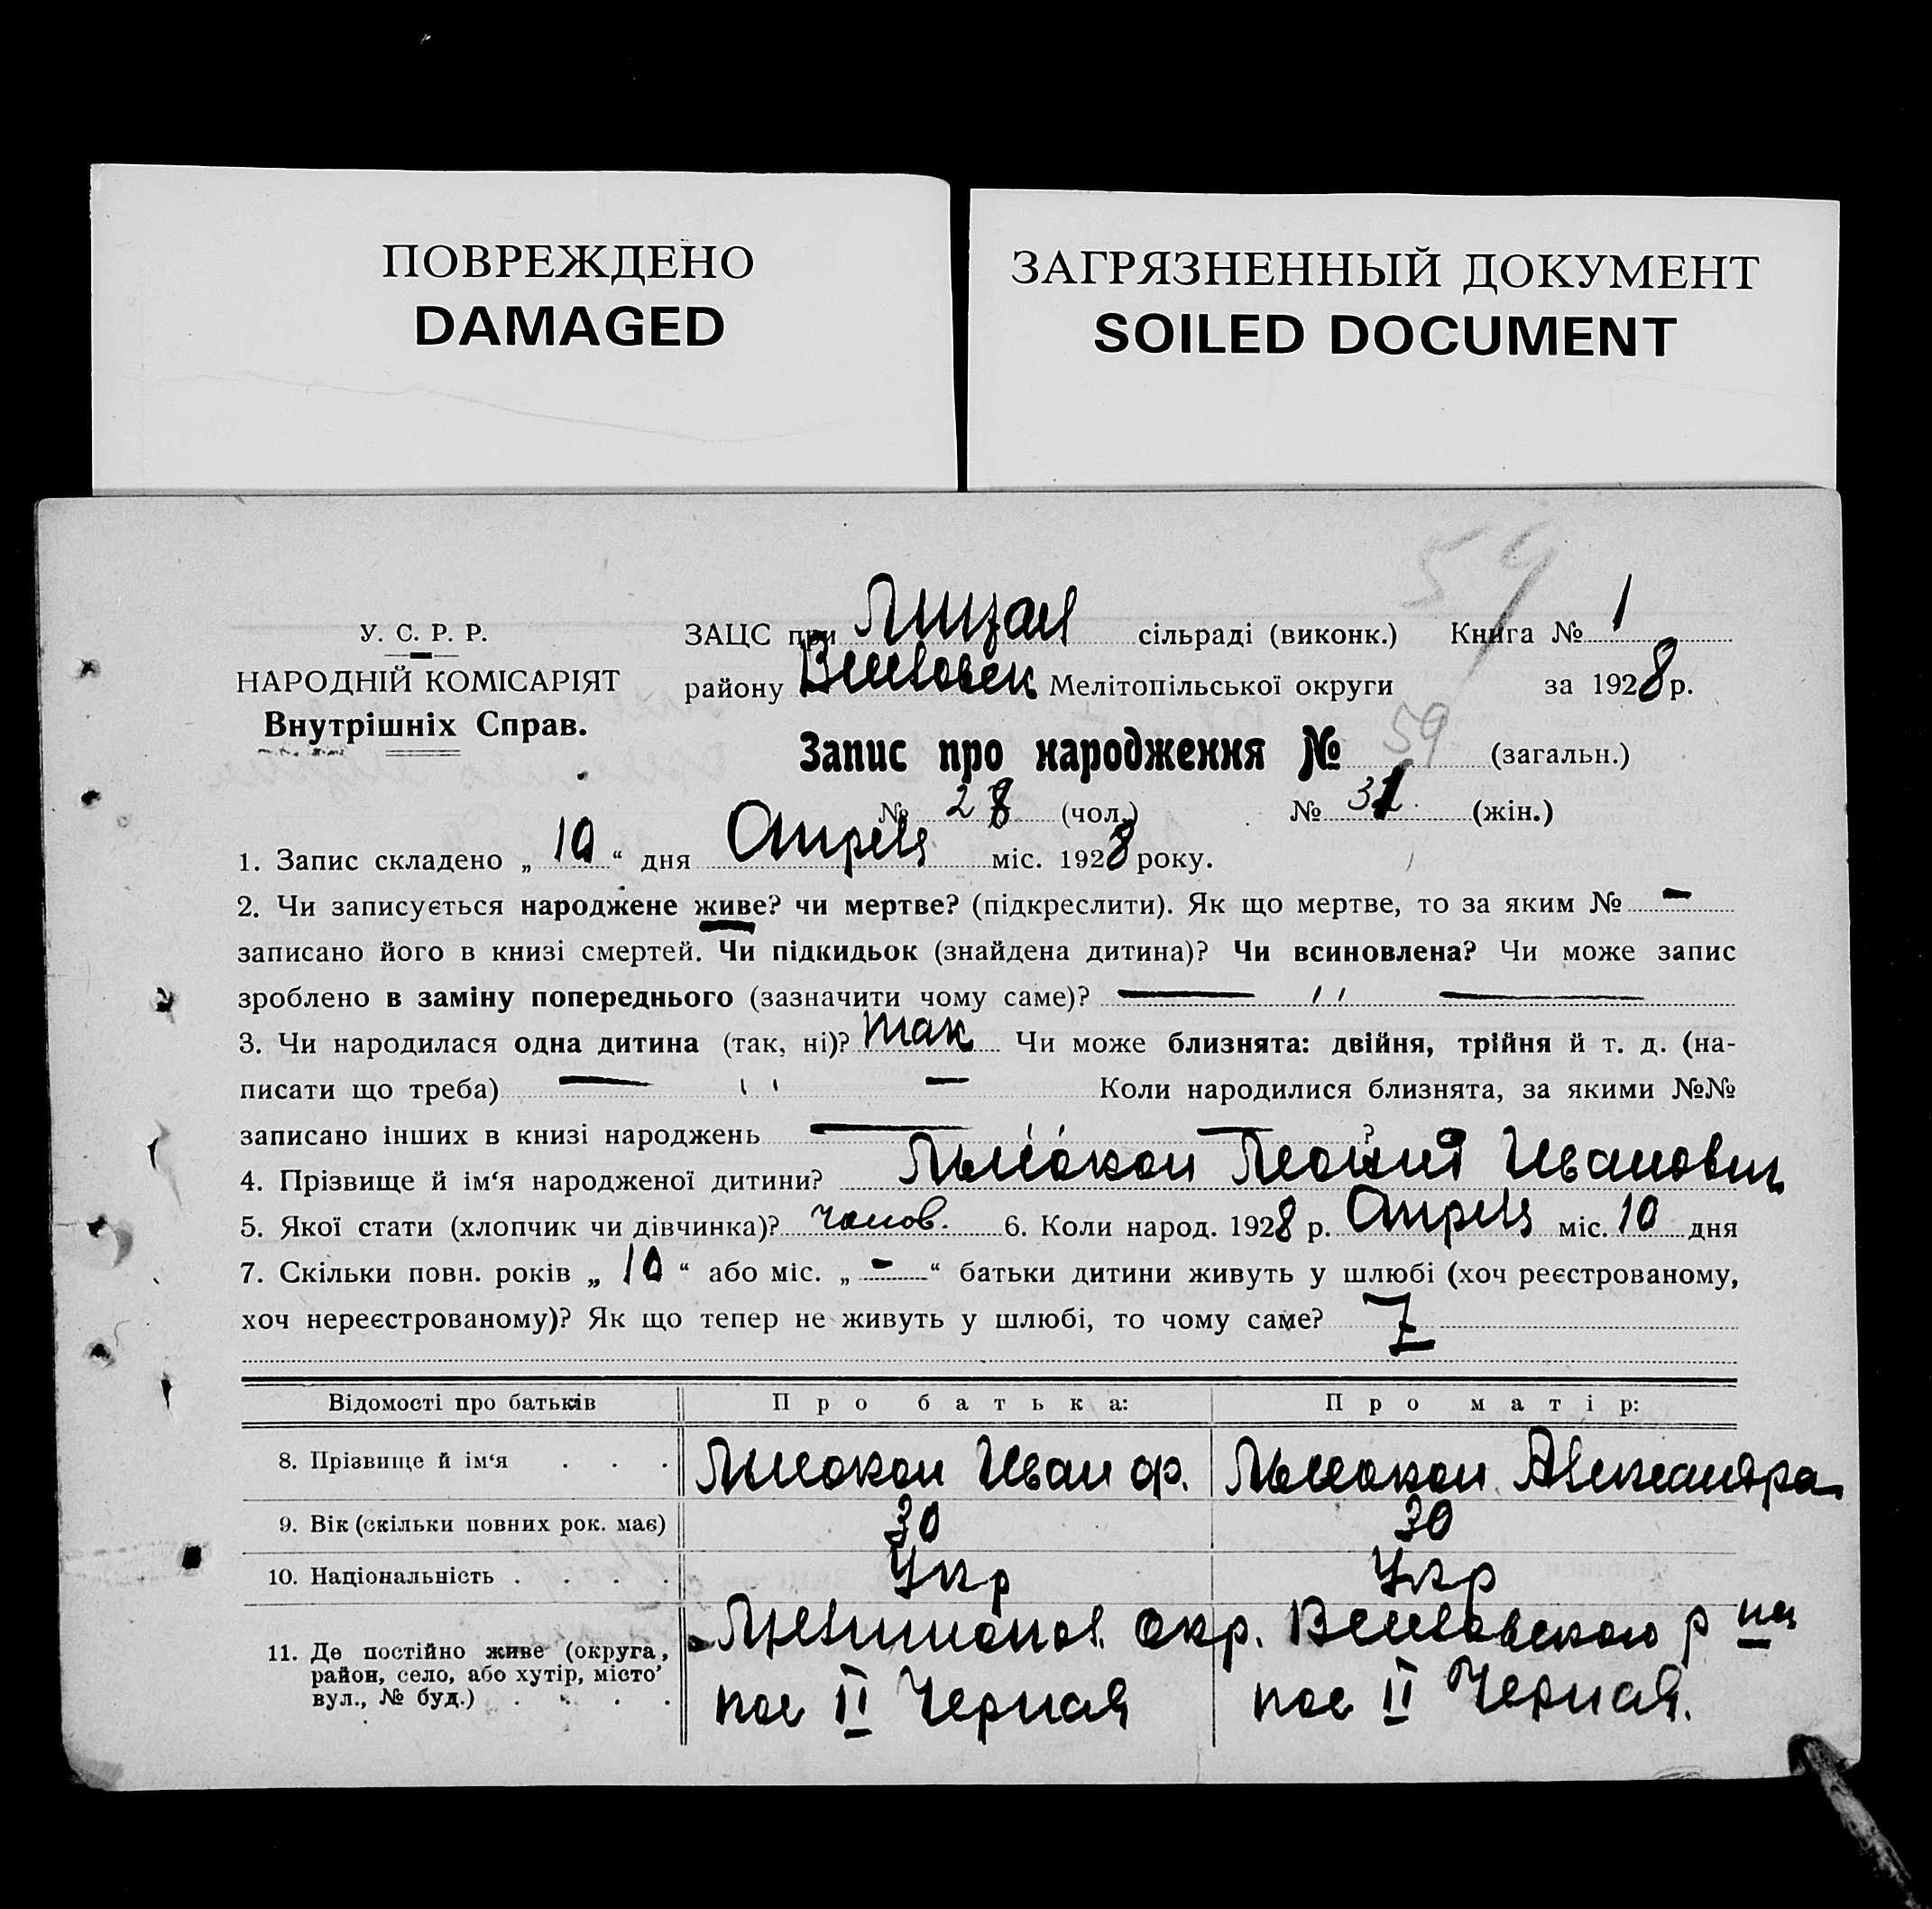 ПОВРЕЖДЕНО
DAMAGED
ЗАГРЯЗНЕННЫЙ ДОКУМЕНТ
SOILED DOCUMENT
59
У. С. Р. Р.
НАРОДНІЙ КОМІСАРІЯТ
Внутрішніх Справ.
ЗАЦС при сільраді (виконк.) Книга № 1
району Мелітопільської округи за 1928 р.
Запис про народження № 59 (загальн.)
№ 28 (чол.) № 31 (жін.)
1. Запис складено „ 10 “ дня Апреля міс. 1928 року.
2. Чи записується народжене живе? чи мертве? (підкреслити). Як що мертве, то за яким № —
записано його в книзі смертей. Чи підкидьок (знайдена дитина)? Чи всиновлена? Чи може запис
зроблено в заміну попереднього (зазначити чому саме)? — „ —
3. Чи народилася одна дитина (так, ні)? так Чи може близнята: двійня, трійня й т. д. (на-
писати що треба) — „ — Коли народилися близнята, за якими №№
записано інших в книзі народжень — „ — ?
4. Прізвище й ім‘я народженої дитини? Леонид Иванович
5. Якої стати (хлопчик чи дівчинка)? чолов. 6. Коли народ. 1928 р. Апреля міс. 10 дня
7. Скільки повн. років „ 10 “ або міс. „ — “ батьки дитини живуть у шлюбі (хоч реєстрованому,
хоч нереєстрованому)? Як що тепер не живуть у шлюбі, то чому саме?
Відомості про батьків Про батька: Про матір:
8. Прізвище й ім‘я . . . Иван ф. Александра
9. Вік (скільки повних рок. має) 30 30
10. Національність . . . . Укр Укр
11. Де постійно живе (округа,
район, село, або хутір, місто
вул., № буд.) . . . .
Мелитопол. окр. Веселовского р на
пос II Черная пос II Черная.